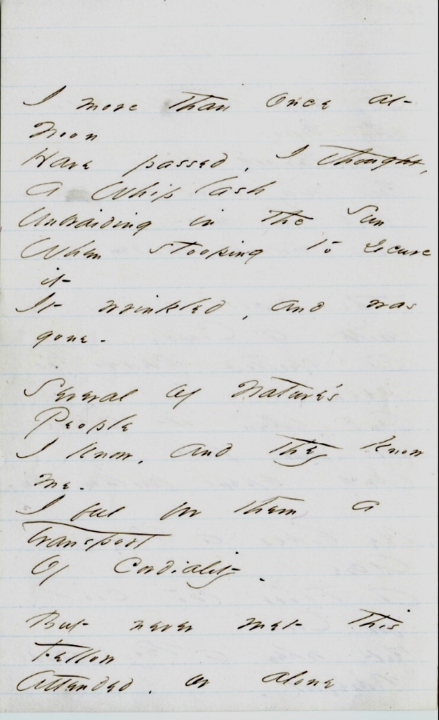 I more than once at
noon
Have passed, I thought,
a Whip lash
Unbraiding in the Sun
When stooping to secure
it
It wrinkled, and was
gone.
Several of Nature's
People
I know, and they know
me.
I feel for them a
transport
Of Cordiality.
But never met this
Fellow
Attended, or alone